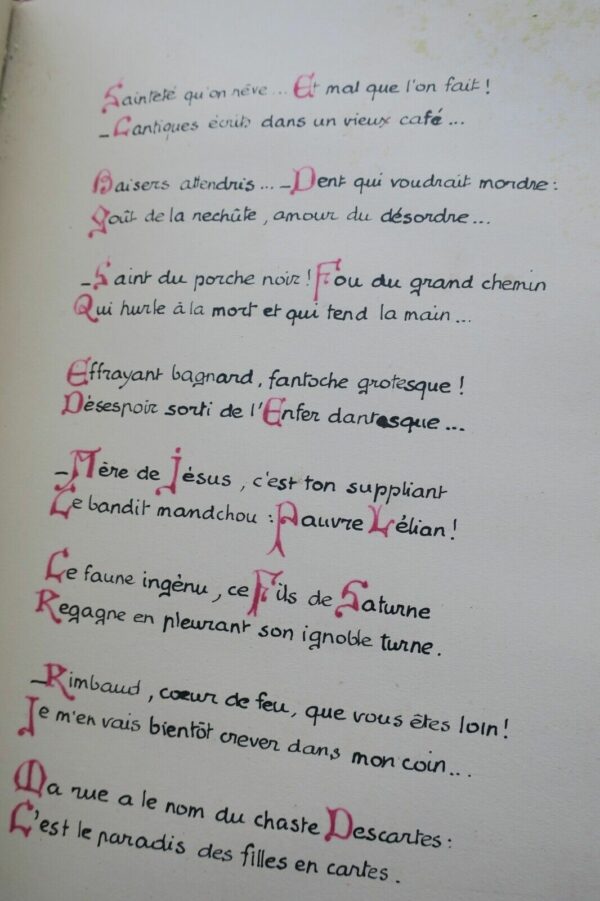 Sainteté qu'on rêve... Et mal que l'on fait !
_Cantiques écrits dans un vieux café...
Baisers attendris... _Dent qui voudrait mordre :
Goût de la rechûte, amour du désordre...
_Saint du porche noir ! Fou du grand chemin
Qui hurle à la mort et qui tend la main...
Effrayant bagnard, fantoche grotesque !
Désespoir sorti de l'Enfer dantesque...
_Mère de Jésus, c'est ton suppliant
Le bandit mandchou : Pauvre Lélian !
Le faune ingénu, ce Fils de Saturne
Regagne en pleurant son ignoble turne.
_Rimbaud, cœur de feu, que vous êtes loin !
Je m'en vais bientôt crever dans mon coin...
Ma rue a le nom du chaste Descartes :
C'est le paradis des filles en cartes.